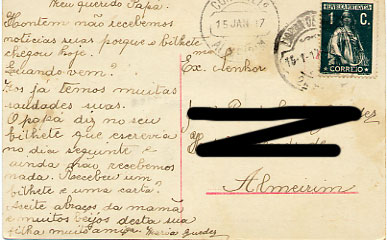 Meu querido Papá.
Hontem não recebemos
noticias suas porque o bilhete
chegou hoje.
Quando vem?
Jos já temos muitas
saudades suas.
O papá diz no seu
bilhete que escrevia
no dia seguinte e
ainda não recebemos
nada. Recebeu um
bilhete e uma carta?
Aceite abraços da mamã
e muitos beijos desta sua
filha muito amiga Maria Guedes
15 JAN 17
1 C.
CORREIO
Ex. Senhor
Almeirim